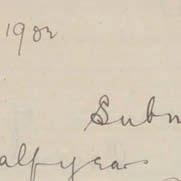 1902
Subm
alf year